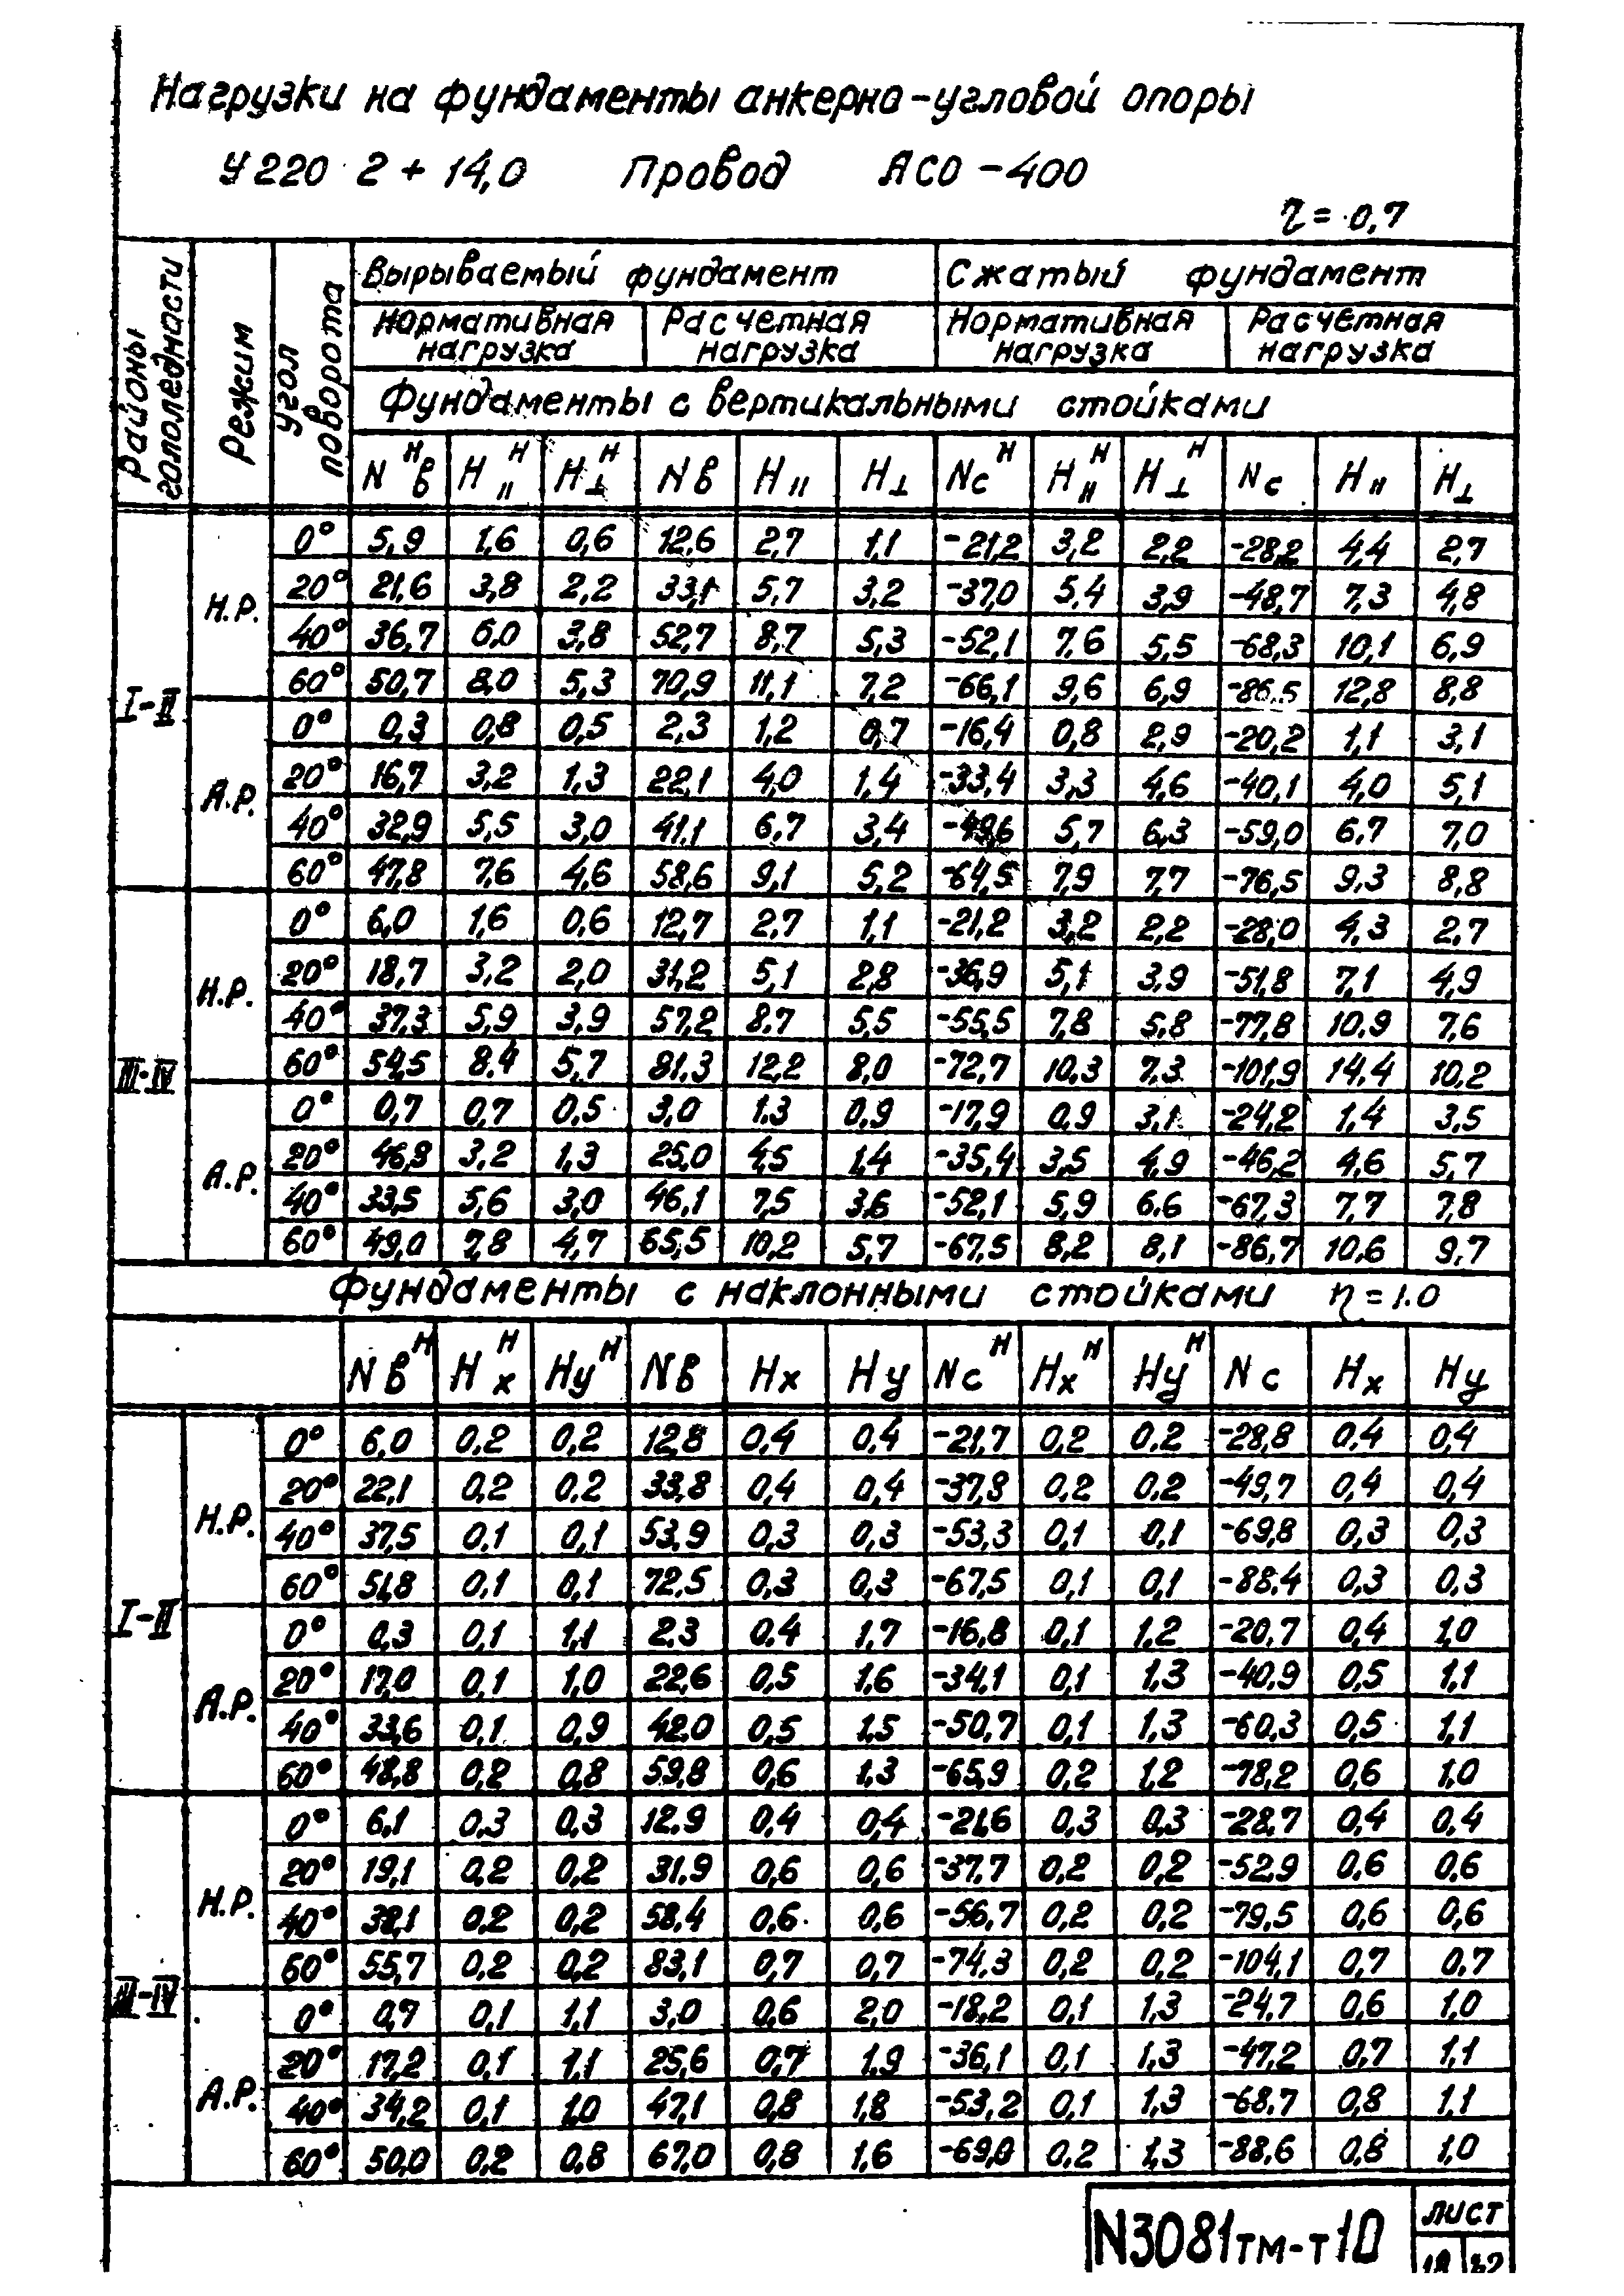 Нагрузки на фундаменты анкерно-угловой опоры
У 220 2 + 14,0 Провод АСО -400
η = 0,7
Районы гололедности Режим Угол поворота Вырываемый фундамент Сжатый фундамент
Нормативная нагрузка Расчетная нагрузка Нормативная нагрузка Расчетная нагрузка
Фундаменты с вертикальными стойками
Nвᴴ H॥ᴴ H⊥ᴴ Nв H॥ H⊥ Ncᴴ H॥ᴴ H⊥ᴴ Nc H॥ H⊥
I-II Н.Р. 0° 5,9 1,6 0,6 12,6 2,7 1,1 -21,2 3,2 2,2 -28,2 4,4 2,7
20° 21,6 3,8 2,2 33,1 5,7 3,2 -37,0 5,4 3,9 -48,7 7,3 4,8
40° 36,7 6,0 3,8 52,7 8,7 5,3 -52,1 7,6 5,5 -68,3 10,1 6,9
60° 50,7 8,0 5,3 70,9 11,1 7,2 -66,1 9,6 6,9 -86,5 12,8 8,8
А.Р. 0° 0,3 0,8 0,5 2,3 1,2 0,7 -16,4 0,8 2,9 -20,2 1,1 3,1
20° 16,7 3,2 1,3 22,1 4,0 1,4 -33,4 3,3 4,6 -40,1 4,0 5,1
40° 32,9 5,5 3,0 41,1 6,7 3,4 -49,6 5,7 6,3 -59,0 6,7 7,0
60° 47,8 7,6 4,6 58,6 9,1 5,2 -64,5 7,9 7,7 -76,5 9,3 8,8
III-IV Н.Р. 0° 6,0 1,6 0,6 12,7 2,7 1,1 -21,2 3,2 2,2 -28,0 4,3 2,7
20° 18,7 3,2 2,0 31,2 5,1 2,8 -36,9 5,1 3,9 -51,8 7,1 4,9
40° 37,3 5,9 3,9 57,2 8,7 5,5 -55,5 7,8 5,8 -77,8 10,9 7,6
60° 54,5 8,4 5,7 81,3 12,2 8,0 -72,7 10,3 7,3 -101,9 14,4 10,2
А.Р. 0° 0,7 0,7 0,5 3,0 1,3 0,9 -17,9 0,9 3,1 -24,2 1,4 3,5
20° 3,2 1,3 25,0 4,5 1,4 -35,4 3,5 4,9 -46,2 4,6 5,7
40° 33,5 5,6 3,0 46,1 7,5 3,6 -52,1 5,9 6,6 -67,3 7,7 7,8
60° 49,0 7,8 4,7 65,5 10,2 5,7 -67,5 8,2 8,1 -86,7 10,6 9,7
Фундаменты с наклонными стойками η = 1.0
Nвᴴ Hхᴴ Hуᴴ Nв Hх Hу Ncᴴ Hхᴴ Hуᴴ Nc Hх Hу
I-II Н.Р. 0° 6,0 0,2 0,2 12,8 0,4 0,4 -21,7 0,2 0,2 -28,8 0,4 0,4
20° 22,1 0,2 0,2 33,8 0,4 0,4 -37,8 0,2 0,2 -49,7 0,4 0,4
40° 37,5 0,1 0,1 53,9 0,3 0,3 -53,3 0,1 0,1 -69,8 0,3 0,3
60° 51,8 0,1 0,1 72,5 0,3 0,3 -67,5 0,1 0,1 -88,4 0,3 0,3
А.Р. 0° 0,3 0,1 1,1 2,3 0,4 1,7 -16,8 0,1 1,2 -20,7 0,4 1,0
20° 17,0 0,1 1,0 22,6 0,5 1,6 -34,1 0,1 1,3 -40,9 0,5 1,1
40° 33,6 0,1 0,9 42,0 0,5 1,5 -50,7 0,1 1,3 -60,3 0,5 1,1
60° 48,8 0,2 0,8 59,8 0,6 1,3 -65,9 0,2 1,2 -78,2 0,6 1,0
III-IV Н.Р. 0° 6,1 0,3 0,3 12,9 0,4 0,4 -21,6 0,3 0,3 -28,7 0,4 0,4
20° 19,1 0,2 0,2 31,9 0,6 0,6 -37,7 0,2 0,2 -52,9 0,6 0,6
40° 38,1 0,2 0,2 58,4 0,6 0,6 -56,7 0,2 0,2 -79,5 0,6 0,6
60° 55,7 0,2 0,2 83,1 0,7 0,7 -74,3 0,2 0,2 -104,1 0,7 0,7
А.Р. 0° 0,7 0,1 1,1 3,0 0,6 2,0 -18,2 0,1 1,3 -24,7 0,6 1,0
20° 17,2 0,1 1,1 25,6 0,7 1,9 -36,1 0,1 1,3 -47,2 0,7 1,1
40° 34,2 0,1 1,0 47,1 0,8 1,8 -53,2 0,1 1,3 -68,7 0,8 1,1
60° 50,0 0,2 0,8 67,0 0,8 1,6 -69,0 0,2 1,3 -88,6 0,8 1,0
N3081тм-т10 лист